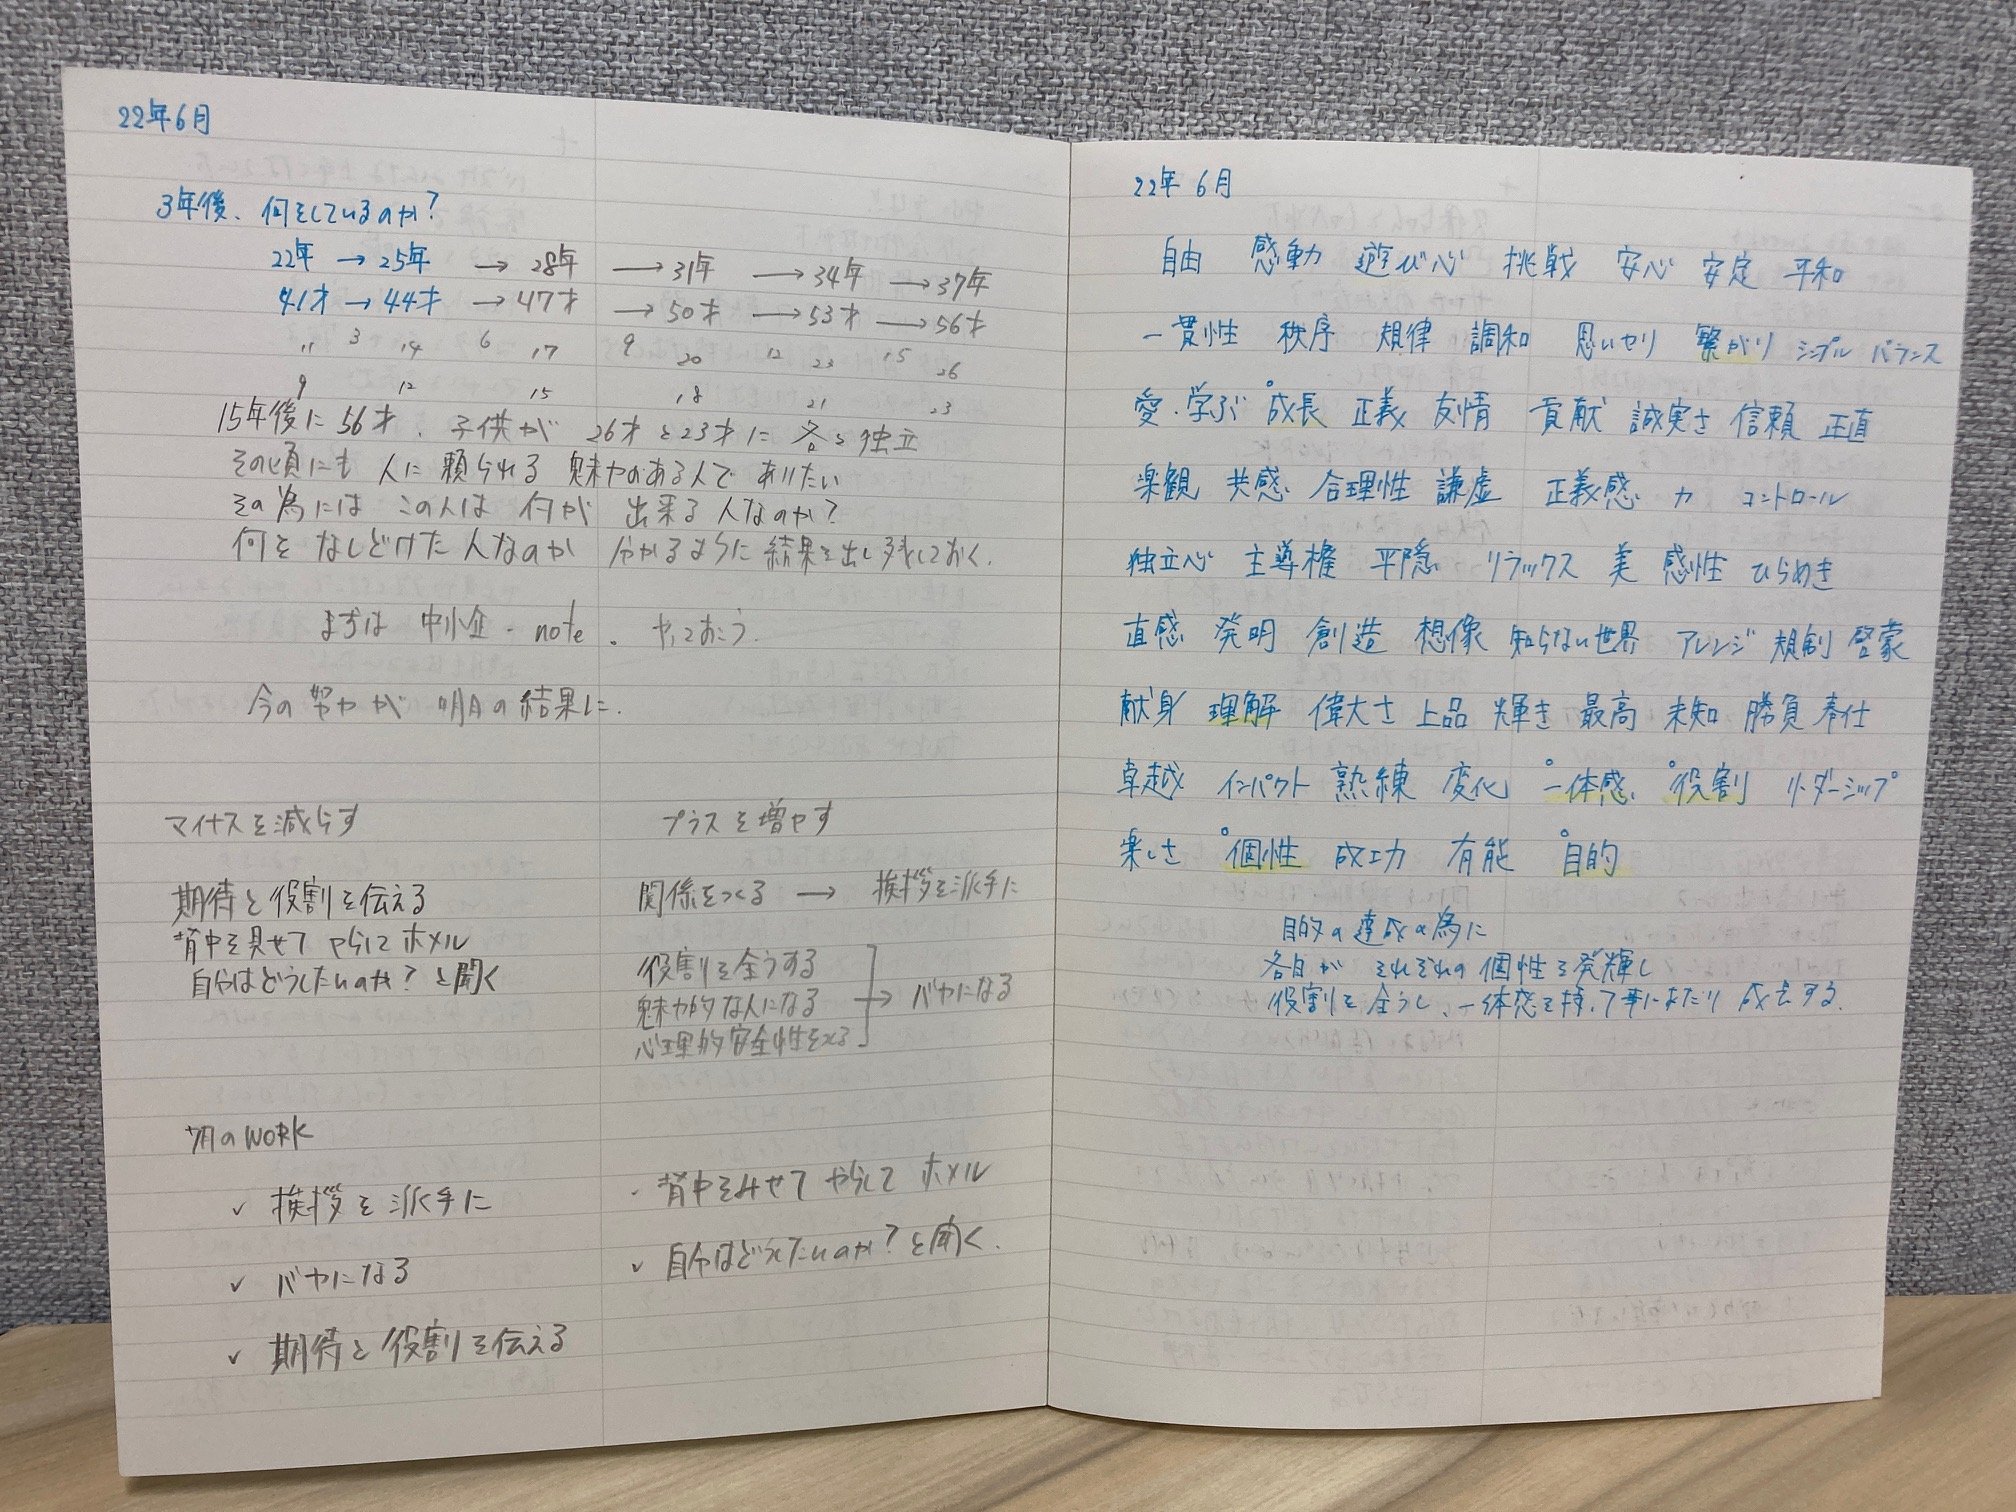 22年6月
3年後、何をしているのか?
22年 → 25年 → 28年 → 31年 → 34年 → 37年
41才 → 44才 → 47才 → 50才 → 53才 → 56才
3 6 9 12 15
11 14 17 20 23 26
9 12 15 18 21 23
15年後に56才、子供が 26才と23才に 各々独立
その頃にも 人に頼られる 魅力のある人で ありたい
その為には この人は 何が 出来る人なのか?
何を なしとげた人なのか 分かるように結果を出し残しておく.
まずは 中小企. note. やっておこう.
今の努力が 明日の結果に.
マイナスを減らす
期待と役割を伝える
背中を見せて やらして ホメル
自分はどうしたいのか? と聞く
プラスを増やす
関係をつくる → 挨拶を派手に
役割を全うする
魅力的な人になる → バカになる
心理的安全性を
WORK
✓ 挨拶を派手に
✓ バカになる
✓ 期待と役割を伝える
・ 背中をみせて やらして ホメル
✓ 自分はどうしたいのか? と聞く.
22年 6月
自由 感動 遊び心 挑戦 安心 安定 平和
一貫性 秩序 規律 調和 思いやり 繋がり シンプル バランス
愛・学ぶ 成長 正義 友情 貢献 誠実さ 信頼 正直
楽観 共感 合理性 謙虚 正義感 力 コントロール
独立心 主導権 平穏 リラックス 美 感性 ひらめき
直感 発明 創造 想像 知らない世界 アレンジ 規則 啓蒙
献身 理解 偉大さ 上品 輝き 最高 未知 勝負 奉仕
卓越 インパクト 熟練 変化 一体感 役割 リーダーシップ
楽しさ 個性 成功 有能 目的
目的の達成の為に
各自が それぞれの個性を発揮し
役割を全うし、一体感を持って事にあたり 成長する.